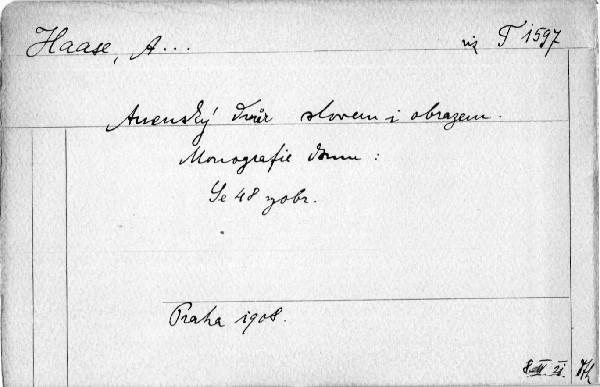 Haase, A...
viz T 1597
Anenský dvůr slovem i obrazem.
Monografie domu:
Se 48 vyobr.
Praha 1908.
8. 21.